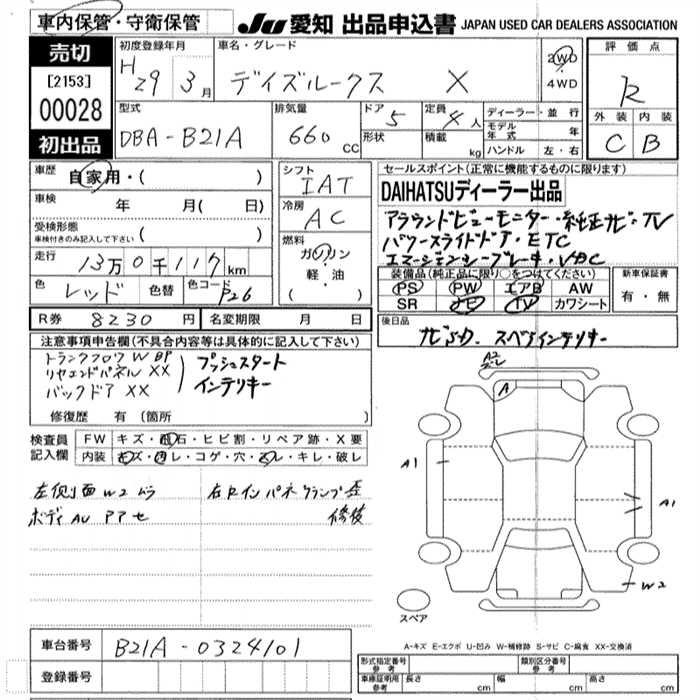 車内保管・守衛保管
JU 愛知 出品申込書 JAPAN USED CAR DEALERS ASSOCIATION
売切
[2153]
00028
初出品
初度登録年月
H29 3月
車名・グレード
デイズルークス X
2WD
4WD
評価点
R
外装 内装
C B
型式
DBA-B21A
排気量
660 cc
ドア 5
形状
定員 4人
積載 kg
ディーラー・並行
モデル年式 年
ハンドル 左・右
車歴
自家用・( )
車検 年 月( 日)
受検形態
車検付きのみ記入して下さい ( )
走行 13万0千117km
色 レッド 色替 色コード P26
シフト
IAT
冷房
AC
燃料
ガソリン
軽・油
( )
セールスポイント(正常に機能するものに限ります)
DAIHATSUディーラー出品
アラウンドビューモニター・純正ナビ・TV
パワースライドドア・ETC
エマージェンシーブレーキ・VDC
装備品(純正品に限り○をつけてください)
PS PW エアB AW
SR ナビ TV カワシート
新車保証書
有・無
R券 8230円 名変期限 月 日
後日品
ナビSD. スペアインテリキー
注意事項申告欄(不具合内容等は具体的に記入して下さい)
トランクフロアW BP
リヤエンドパネルXX
バックドアXX
プッシュスタート
インテリキー
修復歴 有(箇所 )
検査員記入欄
FW キズ・飛石・ヒビ割・リペア跡・X要
内装 キズ・汚レ・コゲ・穴・スレ・キレ・破レ
左側面W2ムラ
ボディAU PPセ
右Rインパネクランプ歪
修後
A2
A
A1
A1
W2
スペア
A-キズ E-エクボ U-凹み W-補修跡 S-サビ C-腐食 XX-交換済
車台番号 B21A-0324101
登録番号
形式指定番号 参考
類別区分番号 参考
車庫証明用 参考 長さ cm 幅 cm 高さ cm